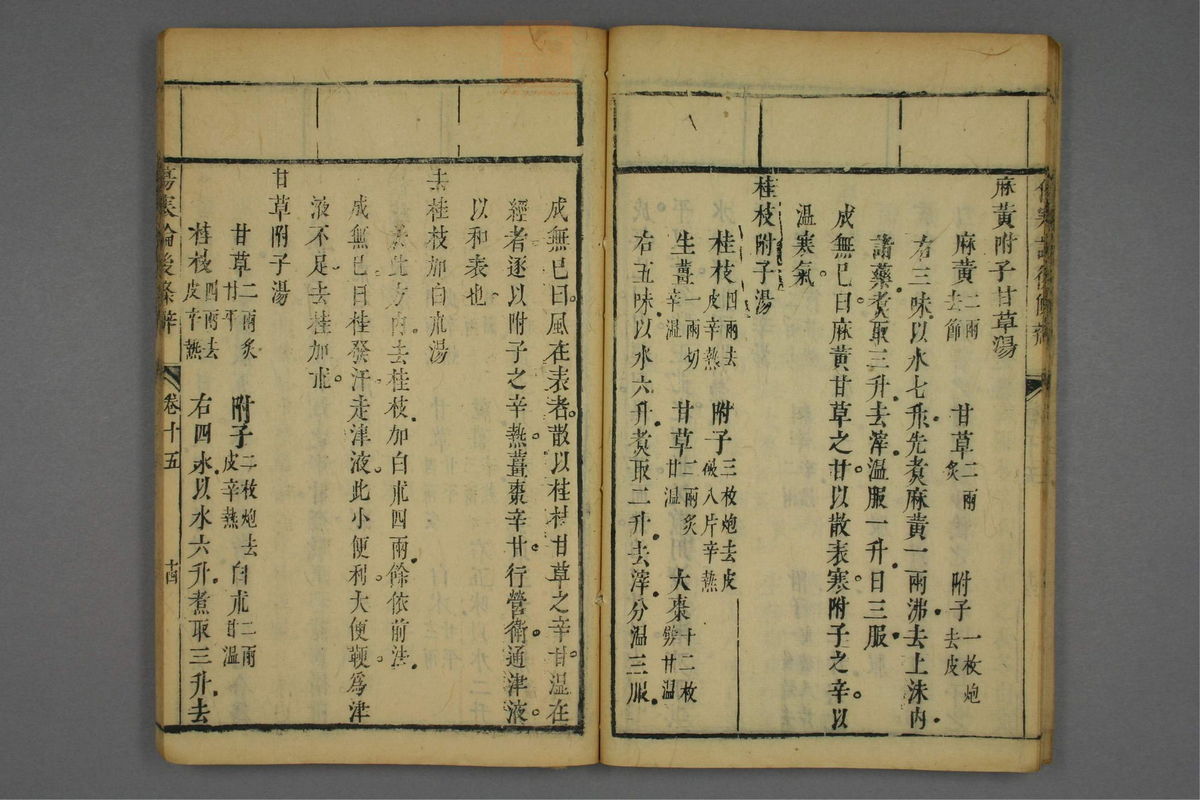 麻黃附子甘草湯
麻黃二兩去節　甘草二兩炙　附子一枚炮去皮
右三味以水七升先煮麻黃一二兩沸去上沫內
諸藥煮取三升去滓溫服一升日三服
成無已曰麻黃甘草之甘以散表寒附子之辛以
溫寒氣
桂枝附子湯
桂枝四兩去皮辛熱　附子三枚炮去皮破八片辛熱
生薑一兩切辛溫　甘草二兩炙甘溫　大棗十二枚劈甘溫
右五味以水六升煮取二升去滓分溫三服
成無已曰風在表者散以桂枝甘草之辛甘濕在
經者逐以附子之辛熱薑棗辛甘行營衛通津液
以和表也
去桂枝加白朮湯
於此方內去桂枝加白朮四兩餘依前法
成無已曰桂發汗走津液此小便利大便鞕爲津
液不足去桂加朮
甘草附子湯
甘草二兩炙甘平　附子二枚炮去皮辛熱　白朮二兩甘溫
桂枝四兩去皮辛熱　右四味以水六升煮取三升去
傷寒論後條辨　卷十五　十四